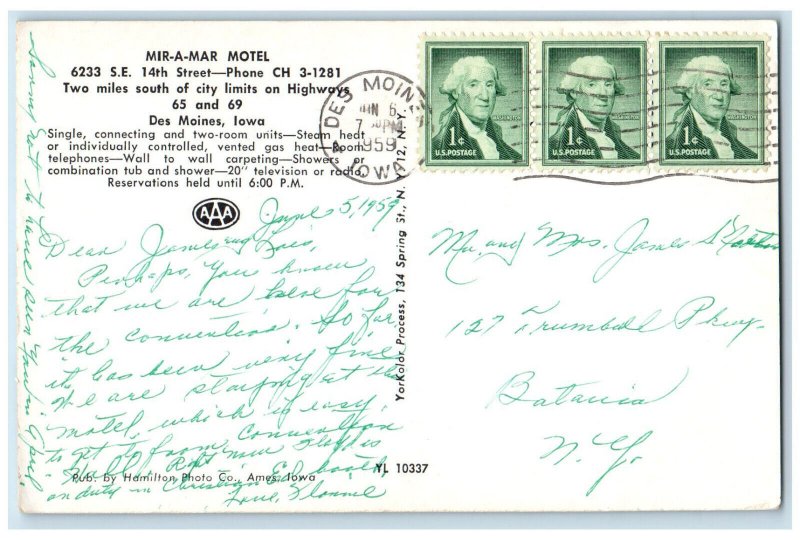 MIR-A-MAR MOTEL
6233 S.E. 14th Street—Phone CH 3-1281
Two miles south of city limits on Highways
65 and 69
Des Moines, Iowa
Single, connecting and two-room units—Steam heat
or individually controlled, vented gas heat—Room
telephones—Wall to wall carpeting—Showers or
combination tub and shower—20" television or radio.
Reservations held until 6:00 P.M.
AAA
June 5, 1959
Dear James and Lois,
Perhaps, you know
that we are here for
the convention. So far,
it has been very fine
We are staying at this
motel, which is easy
to get to from convention
Hall. Right now is
on duty in Christian Ed. booth
Love,
Sorry not to have seen you in April
Pub. by Hamilton Photo Co., Ames, Iowa
YL 10337
YorKolor Process, 134 Spring St., N. Y. 12, N. Y.
DES MOINES
JUN 5
7 PM
1959
IOWA
1¢ WASHINGTON U.S. POSTAGE
1¢ WASHINGTON U.S. POSTAGE
1¢ WASHINGTON U.S. POSTAGE
Mr. and Mrs. James
127 Trumbull Pkwy.
Batavia
N. Y.